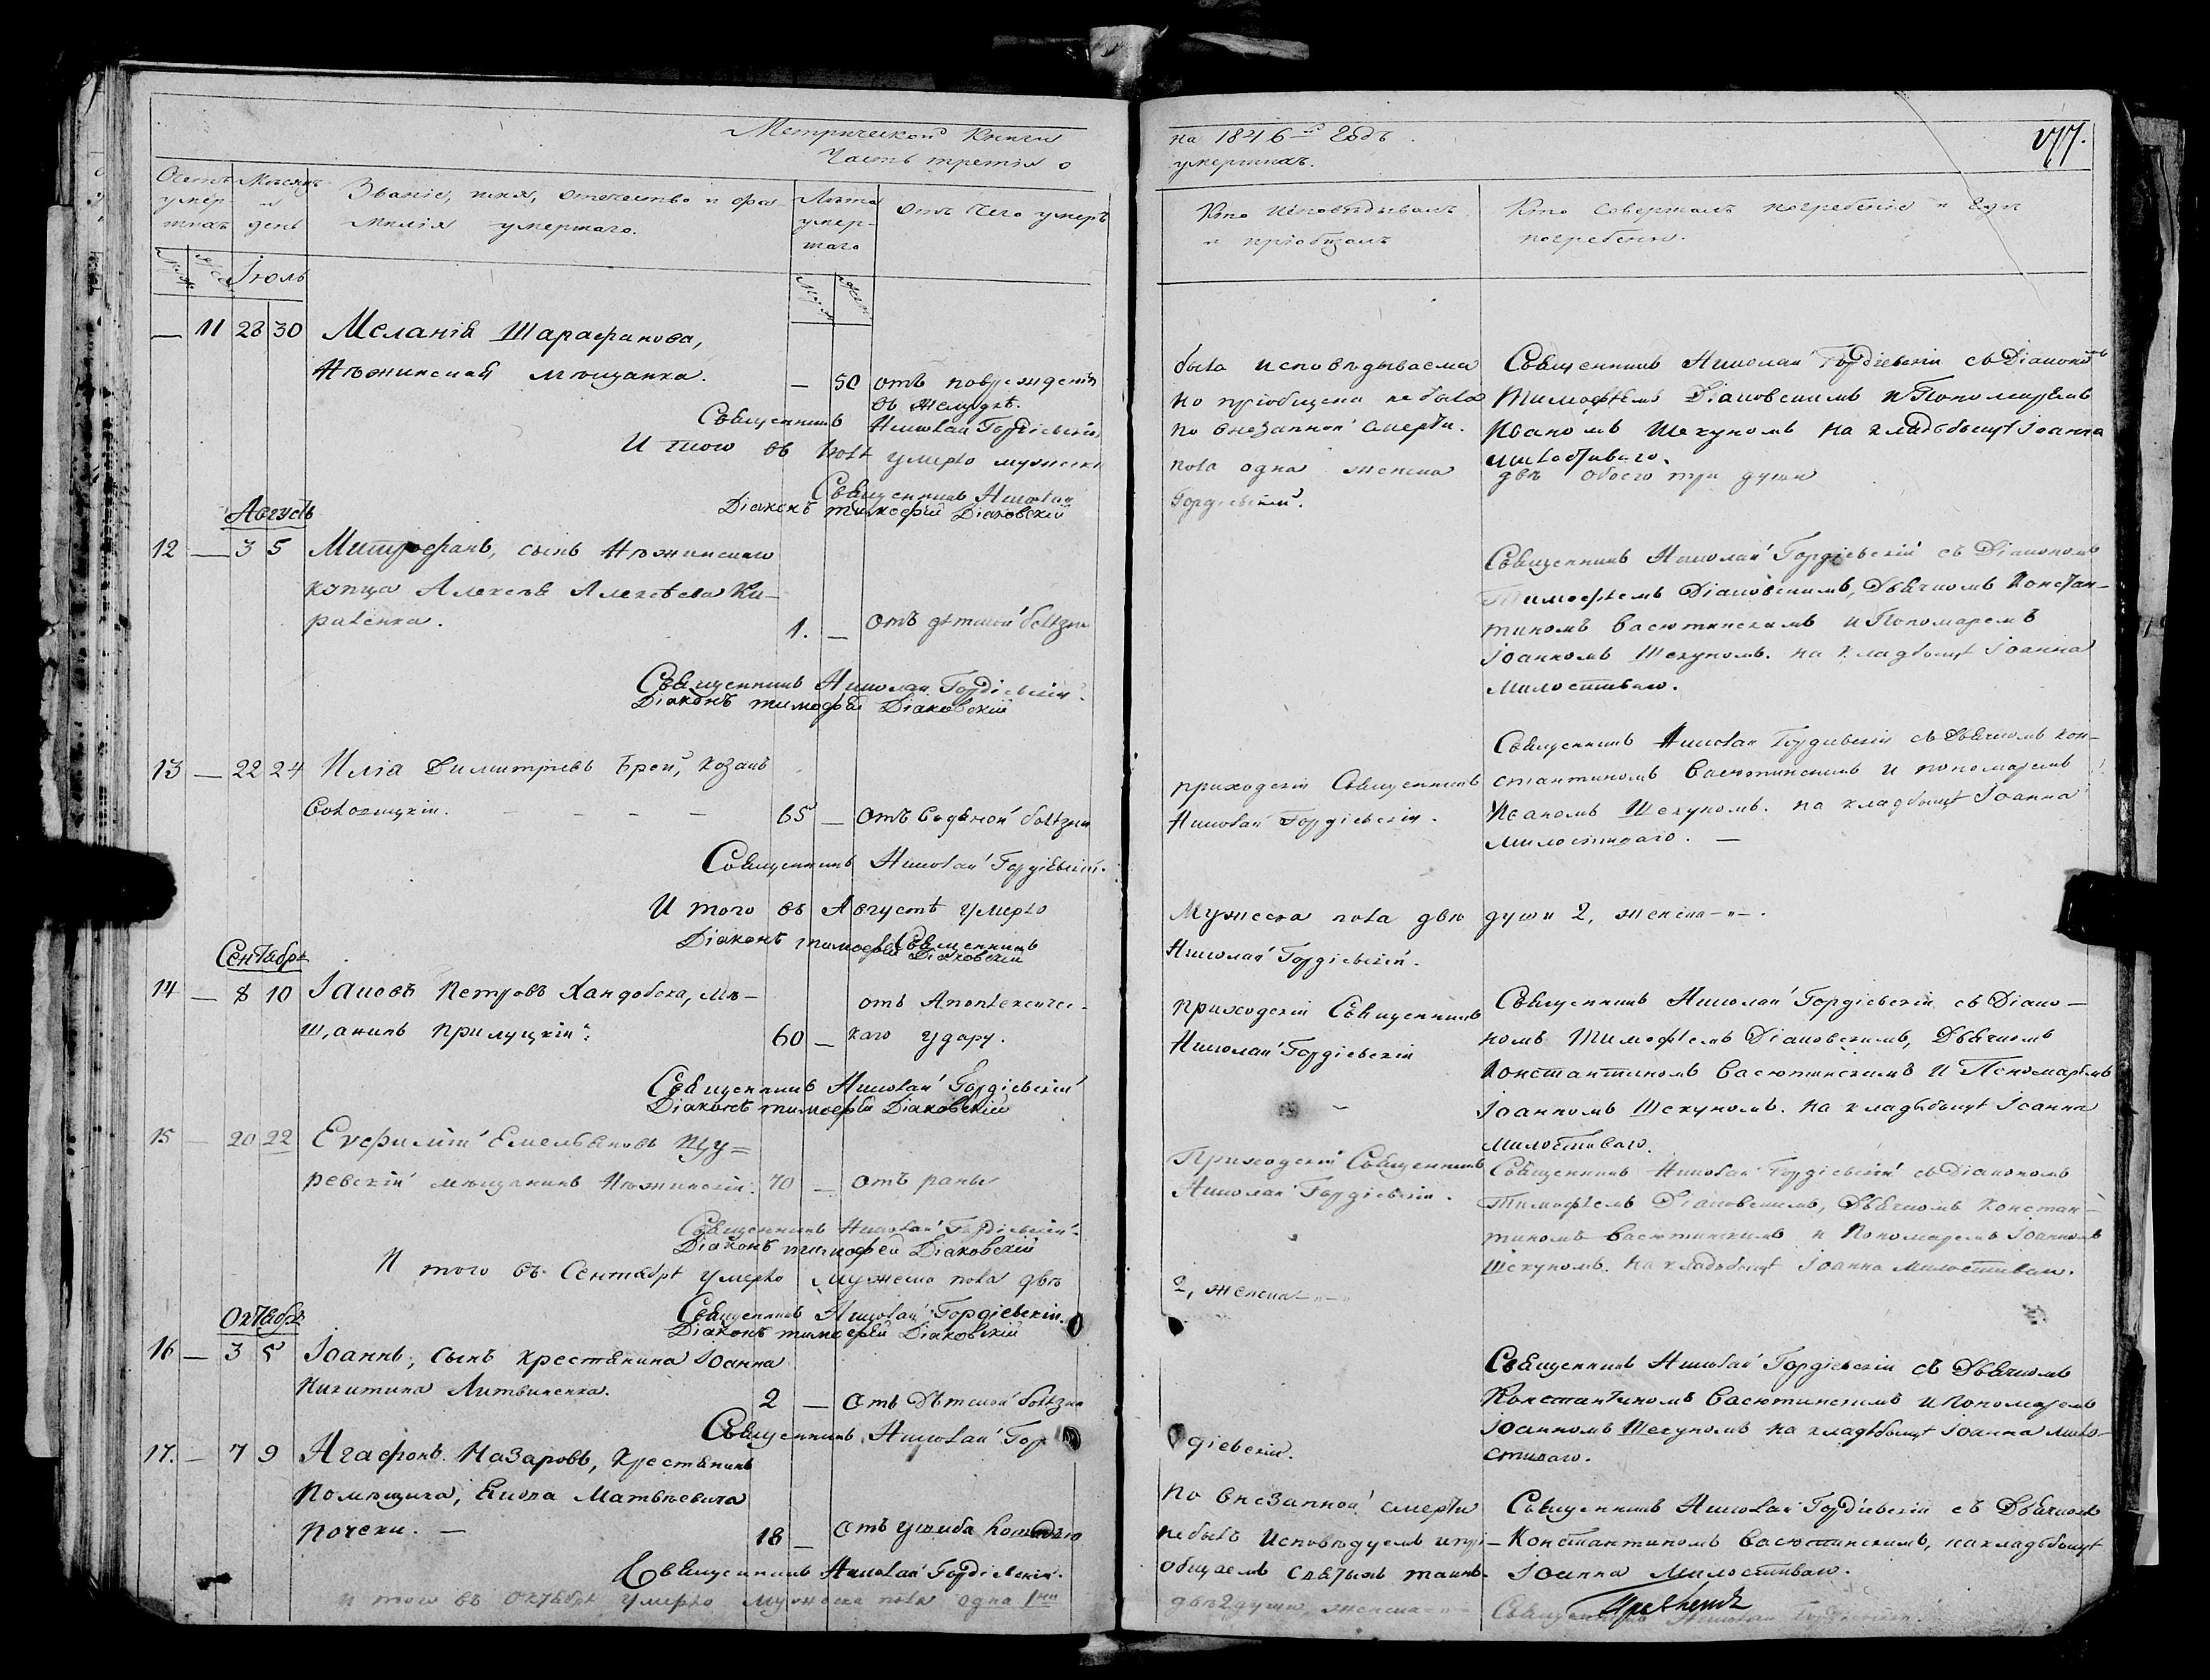 Метрической Книги
Часть третія о
на 1846й Годъ
умершихъ.
177.
Счетъ умер шихъ
Мѣсяцъ и день
Званіе, имя, отечество и фа
милія умершаго.
Лѣта умер- шаго
отъ чего умеръ
Кто исповѣдывалъ
и пріобщалъ
Кто совершалъ погребеніе и гдѣ
погребены.
Іюль
— 11 28 30 Меланія Шарафанова,
Нѣжинская мѣщанка. — 50 отъ поврежденія
въ желудкѣ.
была исповѣдываема
но пріобщена не была
по внезапной смерти.
Священникъ Николай Гордіевскій съ Діакономъ
Тимофѣемъ Діаковскимъ и Пономаремъ
Иваномъ Шекуномъ на кладбищѣ Іоанна
милостиваго.
Священникъ Николай Гордіевскій
И того въ Іюлѣ умерло мужеска
пола одна женска
двѣ обоего три души
Священникъ Николай
Гордіевскій.
Діаконъ тимофей Діаковскій
Августъ
12 — 3 5 Митрофанъ, сынъ Нѣжинскаго
купца Алексѣя Алексѣева Ки-
риленка. 1. — отъ дѣтской болѣзни
Священникъ Николай Гордіевскій съ Діакономъ
Тимофѣемъ Діаковскимъ, Дьячкомъ Констан-
тиномъ Васютинскимъ и Пономаремъ
Іоанномъ Шекуномъ. на кладбищѣ Іоанна
Милостиваго.
Священникъ Николай Гордіевскій.
Діаконъ тимофей Діаковскій
13 — 22 24 Илія Димитріевъ Брей, козакъ
65 — отъ водяной болѣзни
приходскій Священникъ
Николай Гордіевскій.
Священникъ Николай Гордіевскій съ Дьячкомъ Кон-
стантиномъ Васютинскимъ и пономаремъ
Иваномъ Шекуномъ. на кладбищѣ Іоанна
Милостиваго. —
Священникъ Николай Гордіевскій.
И того въ Августѣ умерло
Мужеска пола двѣ души 2, женска —"—.
Діаконъ тимофей Діаковскій
Священникъ
Николай Гордіевскій.
Сентябрь
14 — 8 10 Іаковъ Петровъ Хандобека, мѣ-
щанинъ прилуцкій. 60 — отъ Апоплексичес-
каго удару.
приходскій Священникъ
Николай Гордіевскій
Священникъ Николай Гордіевскій съ Діако-
номъ Тимофѣемъ Діаковскимъ, Дьячкомъ
Константиномъ Васютинскимъ и Пономаремъ
Іоанномъ Шекуномъ. на кладбищѣ Іоанна
милостиваго.
Священникъ Николай Гордіевскій
Діаконъ тимофей Діаковскій
15 — 20 22 Евфимій Емельяновъ Щу=
ревскій мѣщанинъ Нѣжинскій. 70 — отъ раны
Приходскій Священникъ
Николай Гордіевскій.
Священникъ Николай Гордіевскій съ Діакономъ
Тимофѣемъ Діаковскимъ, Дьячкомъ Констан-
тиномъ Васютинскимъ и Пономаремъ Іоанномъ
Шекуномъ. на кладбищѣ Іоанна милостиваго.
Священникъ Николай Гордіевскій.
Діаконъ тимофей Діаковскій
И того въ Сентябрѣ умерло мужеска пола двѣ
2, женска —"—
Священникъ Николай Гордіевскій.
Діаконъ тимофей Діаковскій
Октябрь
16 — 3 5 Іоаннъ, сынъ крестянина Іоанна
Никитина Литвиненка. 2 — отъ Дѣтской болѣзни
Священникъ Николай Гордіевскій съ Дьячкомъ
Константиномъ Васютинскимъ и Пономаремъ
Іоанномъ Шекуномъ на кладбищѣ Іоанна Мило-
стиваго.
Священникъ Николай Гор
діевскій.
17. — 7 9 Агафонъ Назаровъ, крестянинъ
Помѣщика, Матвѣевича
Почеки. — 18 — отъ ушиба лошадью
по внезапной смерти
не былъ исповѣдуемъ и прі-
общаемъ святыхъ таинъ.
Священникъ Николай Гордіевскій съ Дьячкомъ
Константиномъ Васютинскимъ, на кладбищѣ
Іоанна Милостиваго.
Священникъ Николай Гордіевскій.
И того въ Октябрѣ умерло мужеска пола
двѣ 2 души, женска —"—
Священникъ Николай Гордіевскій.